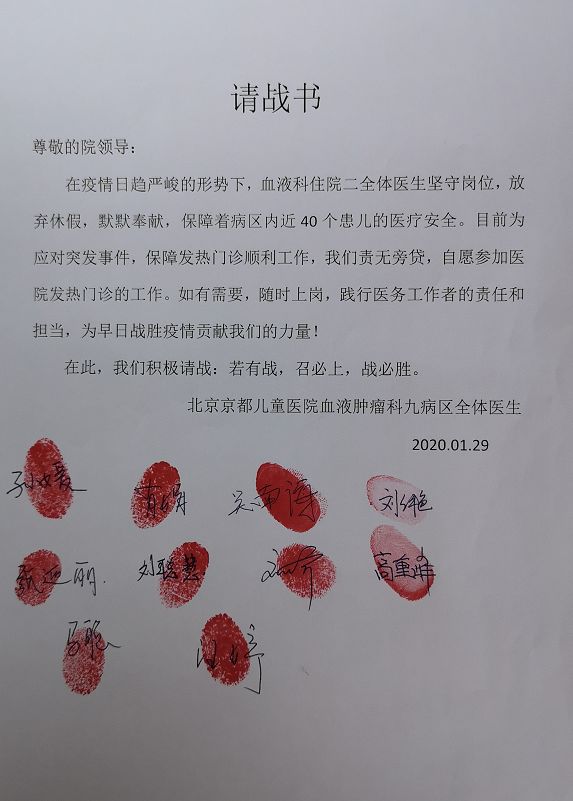 请战书
尊敬的院领导：
在疫情日趋严峻的形势下，血液科住院二全体医生坚守岗位，放
弃休假，默默奉献，保障着病区内近 40 个患儿的医疗安全。目前为
应对突发事件，保障发热门诊顺利工作，我们责无旁贷，自愿参加医
院发热门诊的工作。如有需要，随时上岗，践行医务工作者的责任和
担当，为早日战胜疫情贡献我们的力量！
在此，我们积极请战：若有战，召必上，战必胜。
北京京都儿童医院血液肿瘤科九病区全体医生
2020.01.29
刘艳
甄迎丽
刘聪慧 高重阳
马聪